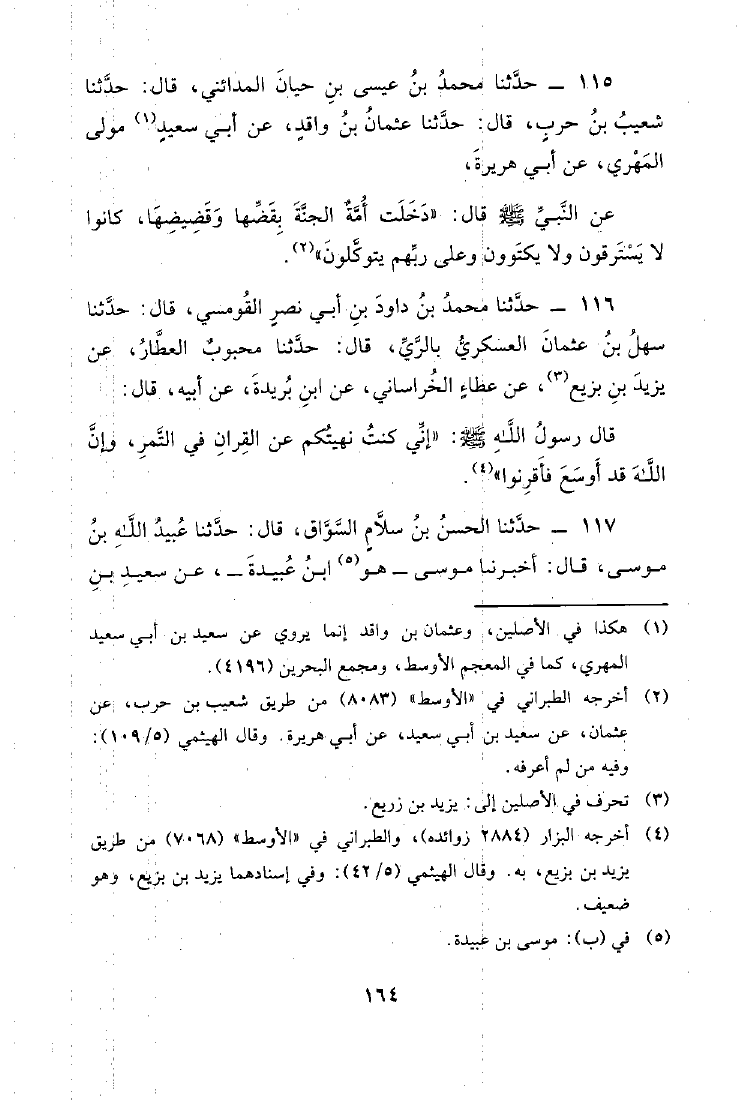 ١١٥ ــ حدَّثنا محمدُ بنُ عيسى بنِ حيانَ المدائني، قال: حدَّثنا
شعيبُ بنُ حربٍ، قال: حدَّثنا عثمانُ بنُ واقدٍ، عن أبي سعيدٍ(١) مولى
المَهْري، عن أبي هريرةَ،
عن النَّبيِّ ﷺ قال: «دَخَلَت أُمَّةٌ الجنَّةَ بِقَضِّها وَقَضِيضِهَا، كانوا
لا يَسْتَرقون ولا يكتَوون وعلى ربِّهم يتوكَّلونَ»(٢).
١١٦ ــ حدَّثنا محمدُ بنُ داودَ بنِ أبي نصرٍ القُومسي، قال: حدَّثنا
سهلُ بنُ عثمانَ العسكريُّ بالرَّيِّ، قال: حدَّثنا محبوبٌ العطَّارُ، عن
يزيدَ بنِ بزيع(٣)، عن عطاءٍ الخُراساني، عن ابنِ بُريدةَ، عن أبيه، قال:
قال رسولُ اللَّهِ ﷺ: «إنِّي كنتُ نهيتُكم عن القِرانِ في التَّمرِ، وإنَّ
اللَّهَ قد أَوسَعَ فأَقرِنوا»(٤).
١١٧ ــ حدَّثنا الحسنُ بنُ سلاَّمٍ السَّوَّاق، قال: حدَّثنا عُبيدُ اللَّهِ بنُ
موسى، قال: أخبرنا موسى ــ هو(٥) ابنُ عُبيدةَ ــ، عن سعيدِ بنِ
(١) هكذا في الأصلين، وعثمان بن واقد إنما يروي عن سعيد بن أبي سعيد
المهري، كما في المعجم الأوسط، ومجمع البحرين (٤١٩٦).
(٢) أخرجه الطبراني في «الأوسط» (٨٠٨٣) من طريق شعيب بن حرب، عن
عثمان، عن سعيد بن أبي سعيد، عن أبي هريرة. وقال الهيثمي (١٠٩/٥):
وفيه من لم أعرفه.
(٣) تحرف في الأصلين إلى: يزيد بن زريع.
(٤) أخرجه البزار (٢٨٨٤ زوائده)، والطبراني في «الأوسط» (٧٠٦٨) من طريق
يزيد بن بزيع، به. وقال الهيثمي (٤٢/٥): وفي إسنادهما يزيد بن بزيع، وهو
ضعيف.
(٥) في (ب): موسى بن عبيدة.
١٦٤